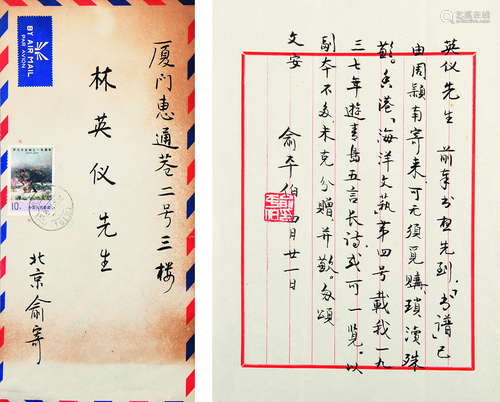 BY AIR MAIL
PAR AVION
厦门惠通巷二号三楼
林英仪先生
北京俞寄
10分
英仪先生 前奉书想先到，「书谱」已
由周颖南寄来可无须觅购，琐渎殊
歉。香港「海洋文艺」第四号载我一九
三七年游青岛五言长诗，或可一览。以
副本不多未克分赠，并歉。匆颂
文安
俞平伯 四月廿一日